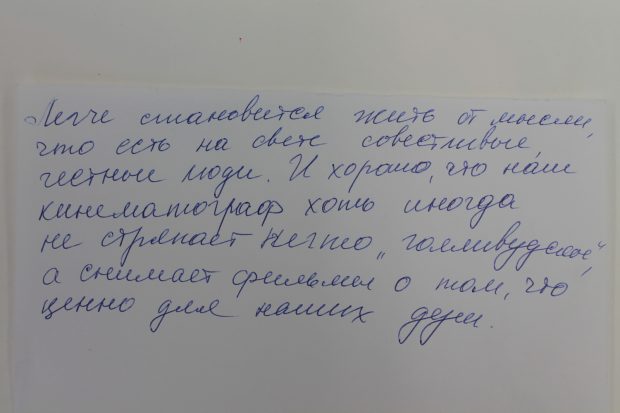 Легче становится жить от мысли,
что есть на свете совестливые,
честные люди. И хорошо, что наш
кинематограф хоть иногда
не стряпает нечто „голливудское",
а снимает фильмы о том, что
ценно для наших душ.